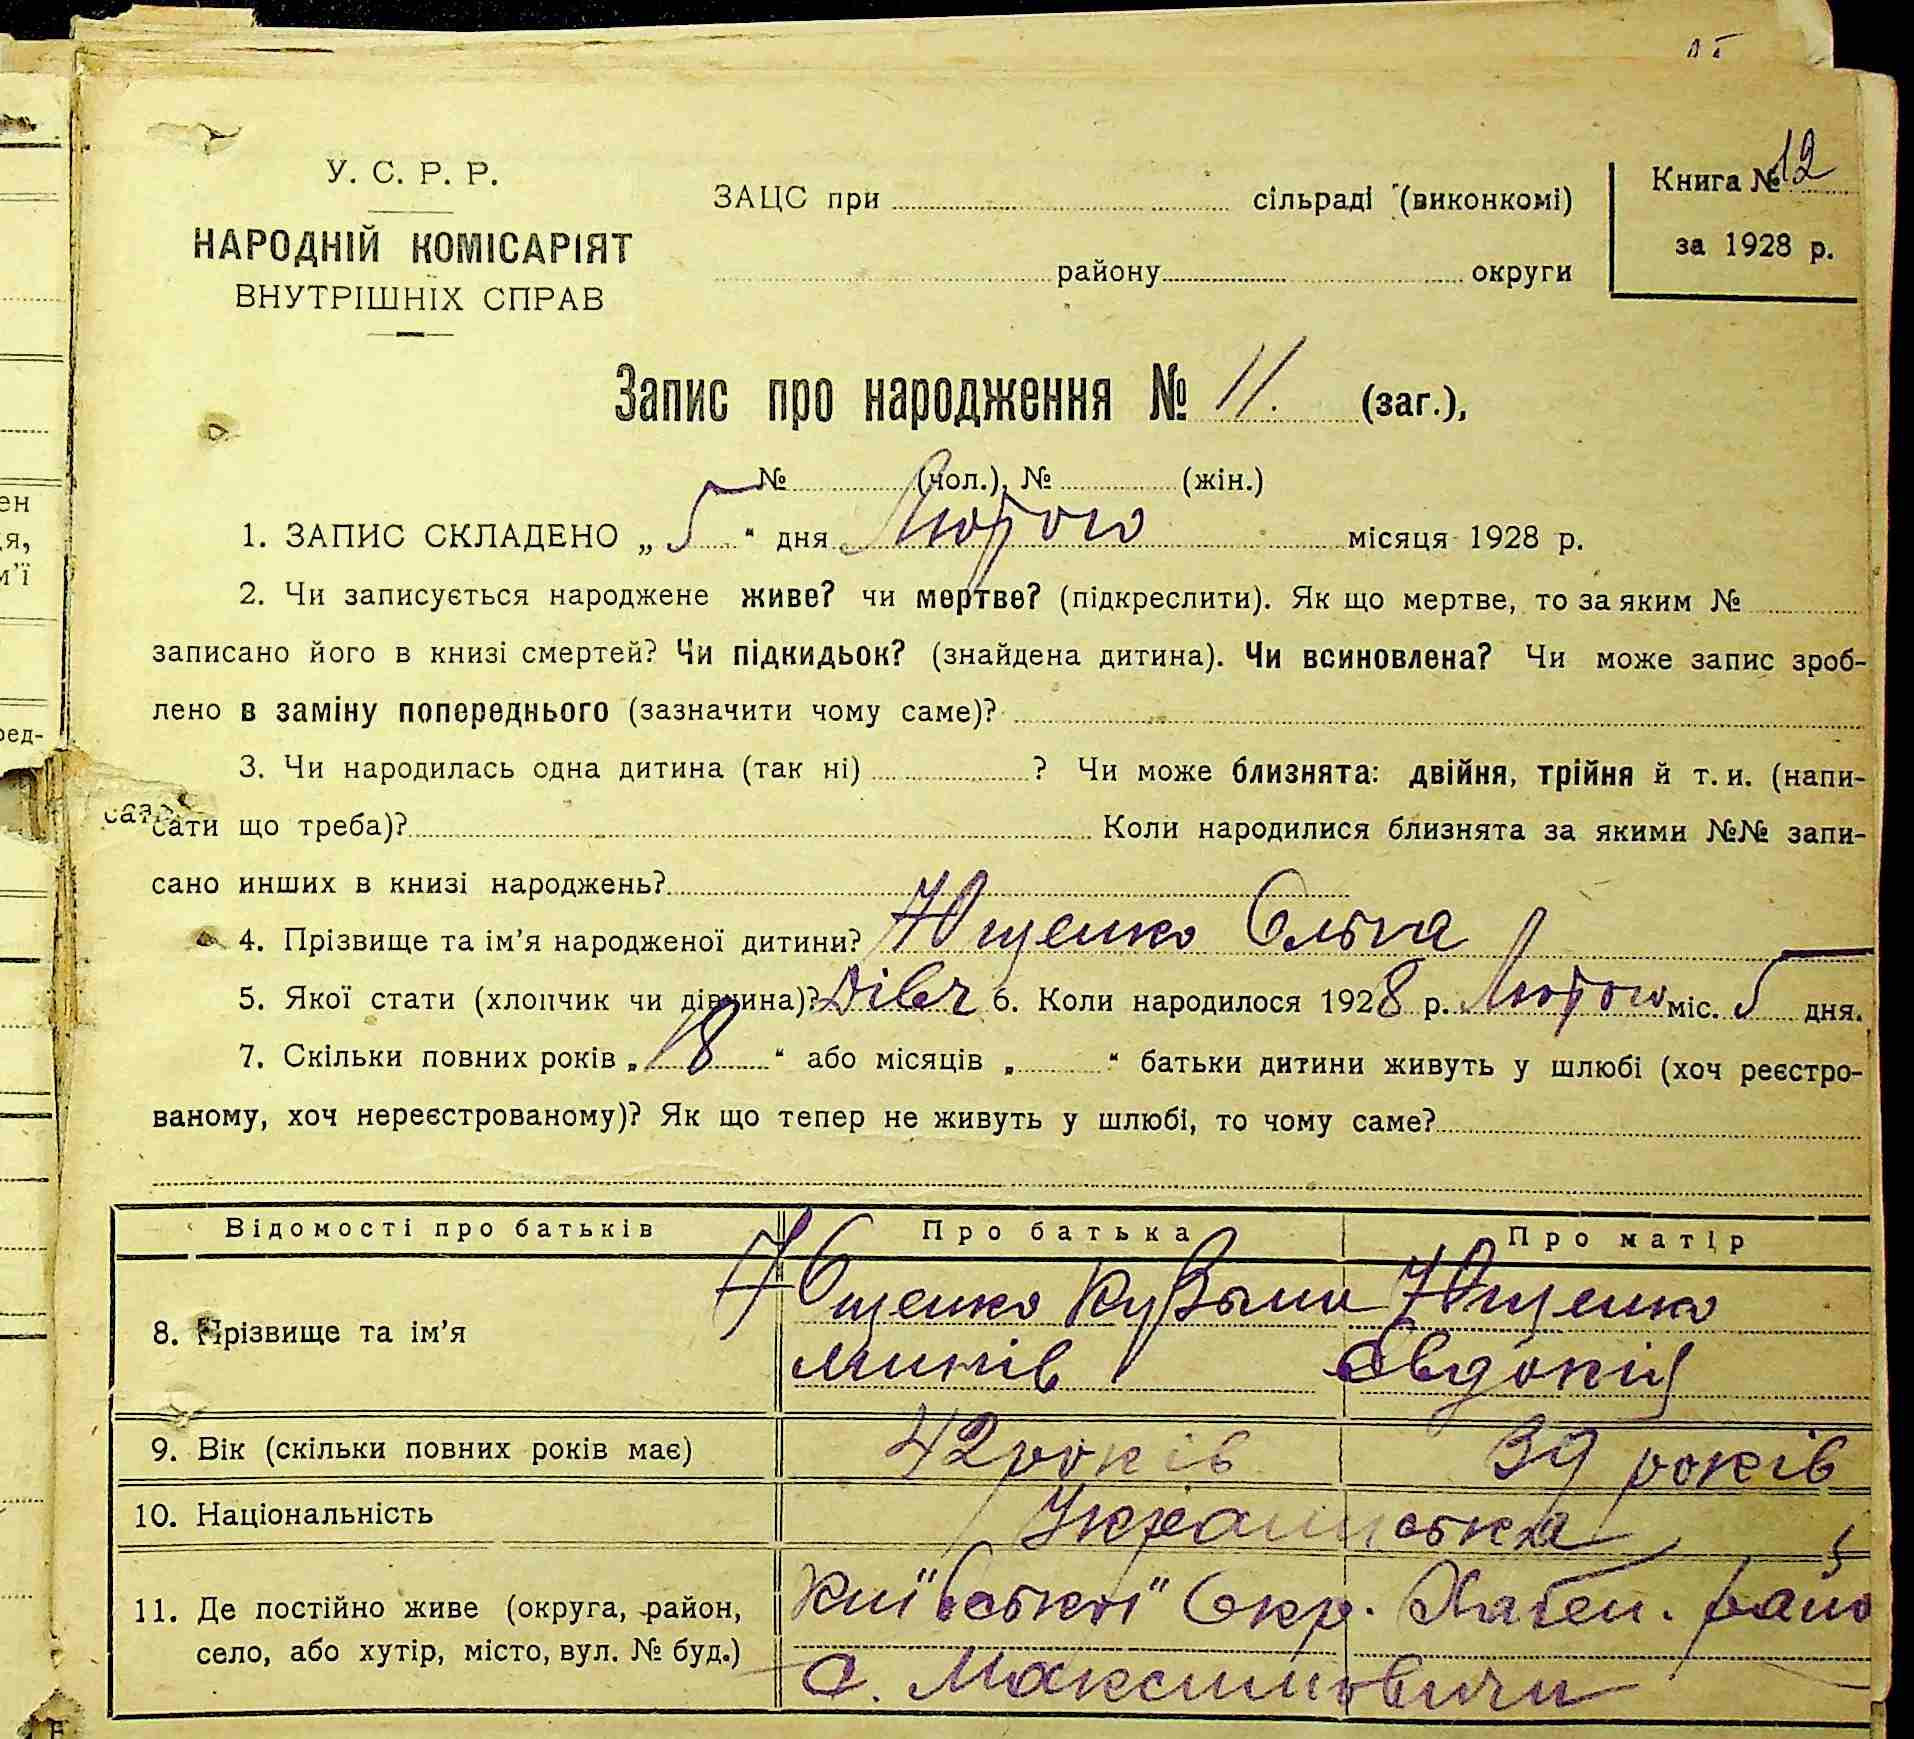 У. С. Р. Р.
НАРОДНІЙ КОМІСАРІЯТ
ВНУТРІШНІХ СПРАВ
ЗАЦС при сільраді (виконкомі)
району округи
Книга № 12
за 1928 р.
Запис про народження № 11. (заг.),
№ (чол.), № (жін.)
1. ЗАПИС СКЛАДЕНО „5“ дня Лютого місяця 1928 р.
2. Чи записується народжене живе? чи мертве? (підкреслити). Як що мертве, то за яким №
записано його в книзі смертей? Чи підкидьок? (знайдена дитина). Чи всиновлена? Чи може запис зроб-
лено в заміну попереднього (зазначити чому саме)?
3. Чи народилась одна дитина (так ні) ? Чи може близнята: двійня, трійня й т. и. (напи-
сати що треба)? Коли народилися близнята за якими №№ запи-
сано инших в книзі народжень?
4. Прізвище та ім’я народженої дитини? Ющенко Ольга
5. Якої стати (хлопчик чи дівчина)? Дівч 6. Коли народилося 1928 р. Лютого міс. 5 дня.
7. Скільки повних років „18“ або місяців „ “ батьки дитини живуть у шлюбі (хоч реєстро-
ваному, хоч нереєстрованому)? Як що тепер не живуть у шлюбі, то чому саме?
Відомості про батьків Про батька Про матір
8. Прізвище та ім’я Ющенко Кузьма Ющенко
Євдокія
9. Вік (скільки повних років має) 42 років 39 років
10. Національність Українська
11. Де постійно живе (округа, район, Київської Окр. Хабен. райо
село, або хутір, місто, вул. № буд.) с. Максимовичи
ен
я,
м’ї
ред-